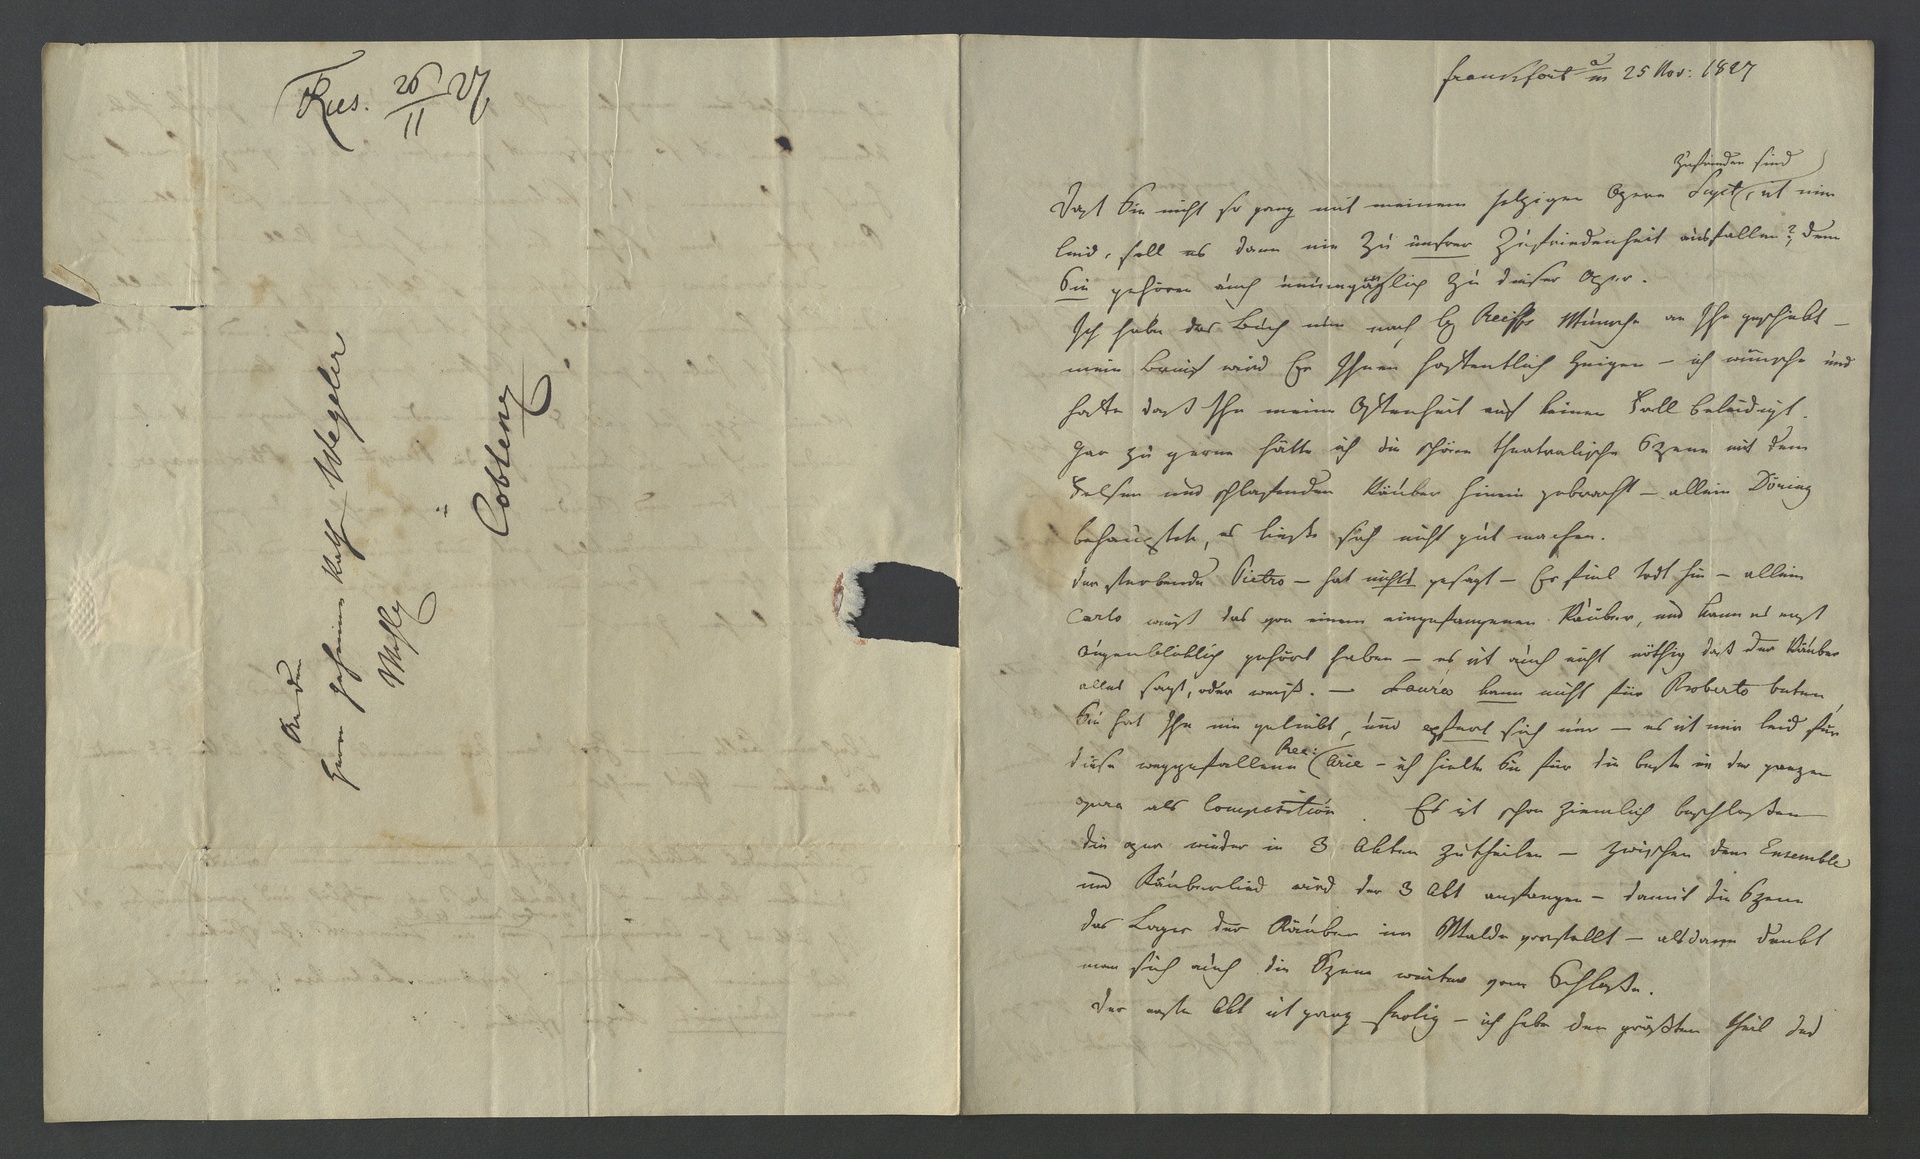 Ries. 26/11 27
An den
Herrn geheimen Rath Wegeler
Wohlg
in
Coblenz
Frankfort a/m 25 Nov: 1827
zufrieden sind
Daß Sie nicht so ganz mit meinem jetzigen Opern Sujet, ist mir
leid, soll es dann nie zu unsrer Zufriedenheit ausfallen? denn
Sie gehören auch zu dieser Oper.
Ich habe das Buch nun nach H Reiffs Wunsche an Ihn geschickt –
mein Brief wird Er Ihnen hoffentlich zeigen – ich wünsche und
hoffe daß Ihn meine Offenheit auf keinen Fall beleidigt.
Gar zu gerne hätte ich die schöne theatralische Szene mit dem
Felsen und schlafenden Räuber hinein gebracht – allein Döring
behauptete, es ließe sich nicht gut machen.
der sterbende Pietro – hat nichts gesagt – Er fiel todt hin – allein
Carlo weiß das von einem eingefangenen Räuber, und kann es erst
augenblicklich gehört haben – es ist auch nicht nöthig daß der Räuber
alles sagt, oder weiß. – Laura kann nicht für Roberto beten
Sie hat Ihn nie geliebt, und opfert sich nur – es ist mir leid für
diese weggefallene Rec: Arie – ich hielte Sie für die beste in der ganzen
opera als Composition. Es ist schon ziemlich beschloßen
die oper wieder in 3 Akten zutheilen – zwischen dem Ensemble
und Räuberlied wird der 3 Akt anfangen – damit die Szene
das Lager der Räuber im Walde vorstellt – alsdann denkt
man sich auch die Szene weiter vom Schloße.
Der erste Akt ist ganz fertig – ich habe den größten theil des